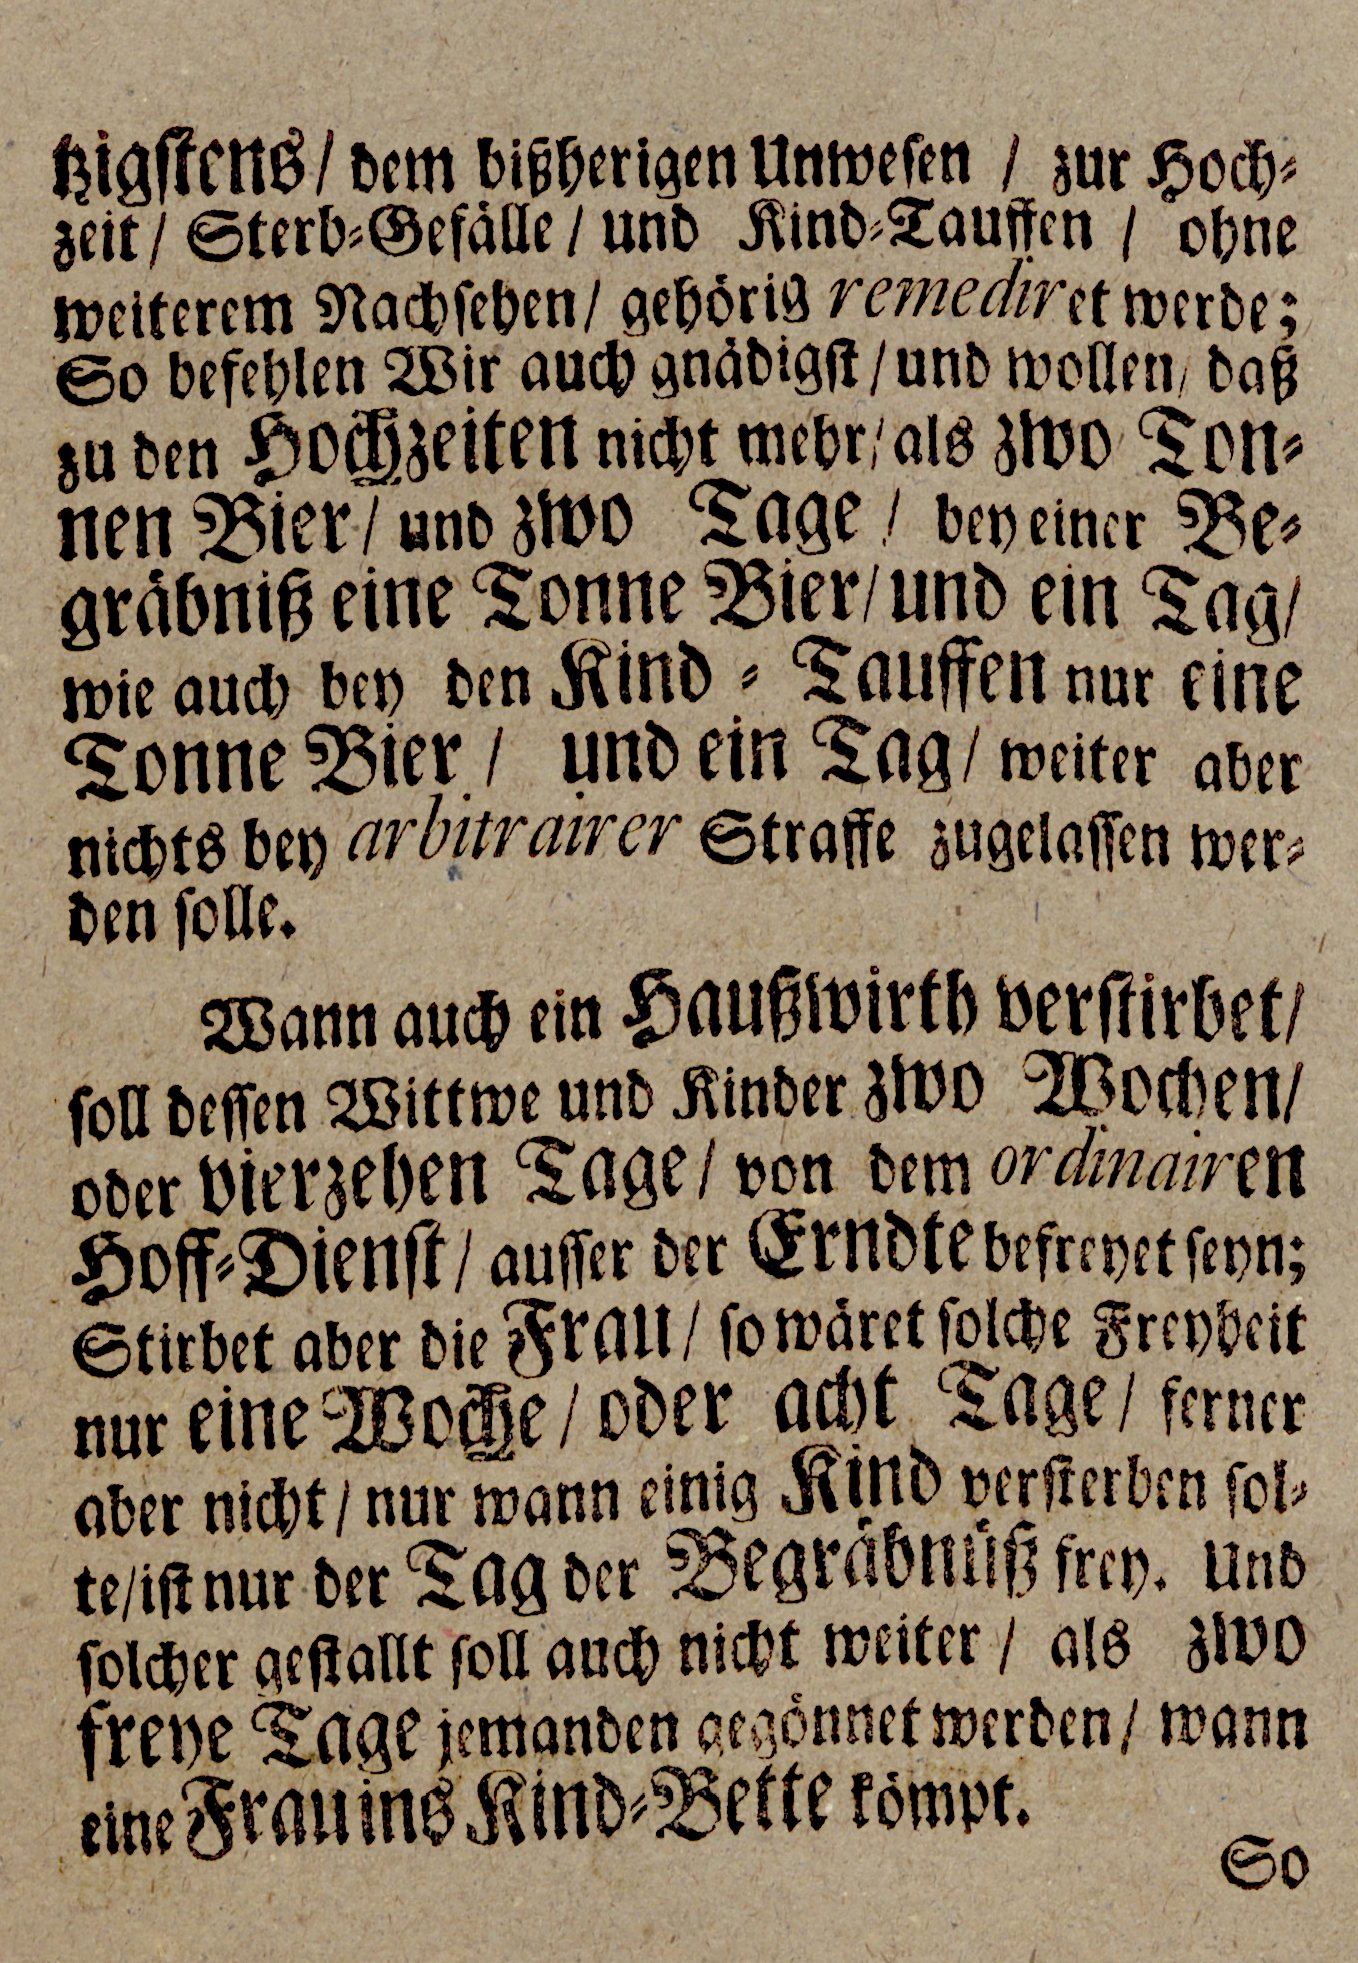 tzigſtens / dem bißherigen Unweſen / zur Hoch⸗
zeit / Sterb⸗Gefälle / und Kind⸗Tauffen / ohne
weiterem Nachſehen / gehörig remediret werde;
So befehlen Wir auch gnädigſt / und wollen / daß
zu den Hochzeiten nicht mehr / als zwo Ton⸗
nen Bier / und zwo Tage / bey einer Be⸗
gräbniß eine Tonne Bier / und ein Tag /
wie auch bey den Kind ⸗ Tauffen nur eine
Tonne Bier / und ein Tag / weiter aber
nichts bey arbitrairer Straffe zugelaſſen wer⸗
den ſolle.
Wann auch ein Haußwirth verſtirbet /
ſoll deſſen Wittwe und Kinder zwo Wochen /
oder vierzehen Tage / von dem ordinairen
Hoff⸗Dienſt / auſſer der Erndte befreyet ſeyn;
Stirbet aber die Frau / ſo wäret ſolche Freyheit
nur eine Woche / oder acht Tage / ferner
aber nicht / nur wann einig Kind verſterben ſol⸗
te / iſt nur der Tag der Begräbnüß frey. Und
ſolcher geſtallt ſoll auch nicht weiter / als zwo
freye Tage jemanden gegönnet werden / wann
eine Frau ins Kind⸗Bette kömpt.
So